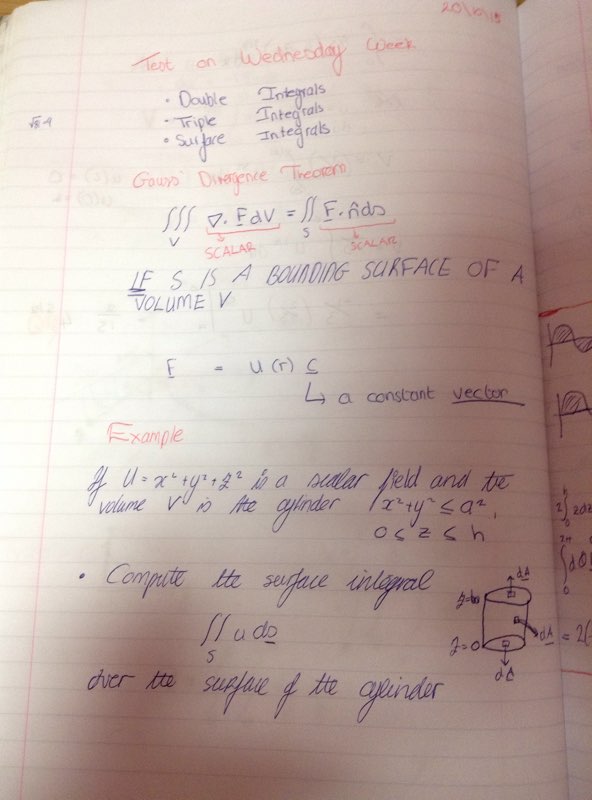 20/10/15
Test on Wednesday Week
• Double Integrals
• Triple Integrals
• Surface Integrals
Gauss' Divergence Theorem
∭_V ∇·F̲ dV = ∬_S F̲·n̂ ds
SCALAR SCALAR
IF S IS A BOUNDING SURFACE OF A
VOLUME V
F̲ = u(r) c̲
↳ a constant vector
Example
If U = x²+y²+z² is a scalar field and the
volume V is the cylinder x²+y² ≤ a²,
0 ≤ z ≤ h
• Compute the surface integral
∬_S u ds̲
over the surface of the cylinder
dA̲
z=h
z=0
dA̲
dA̲